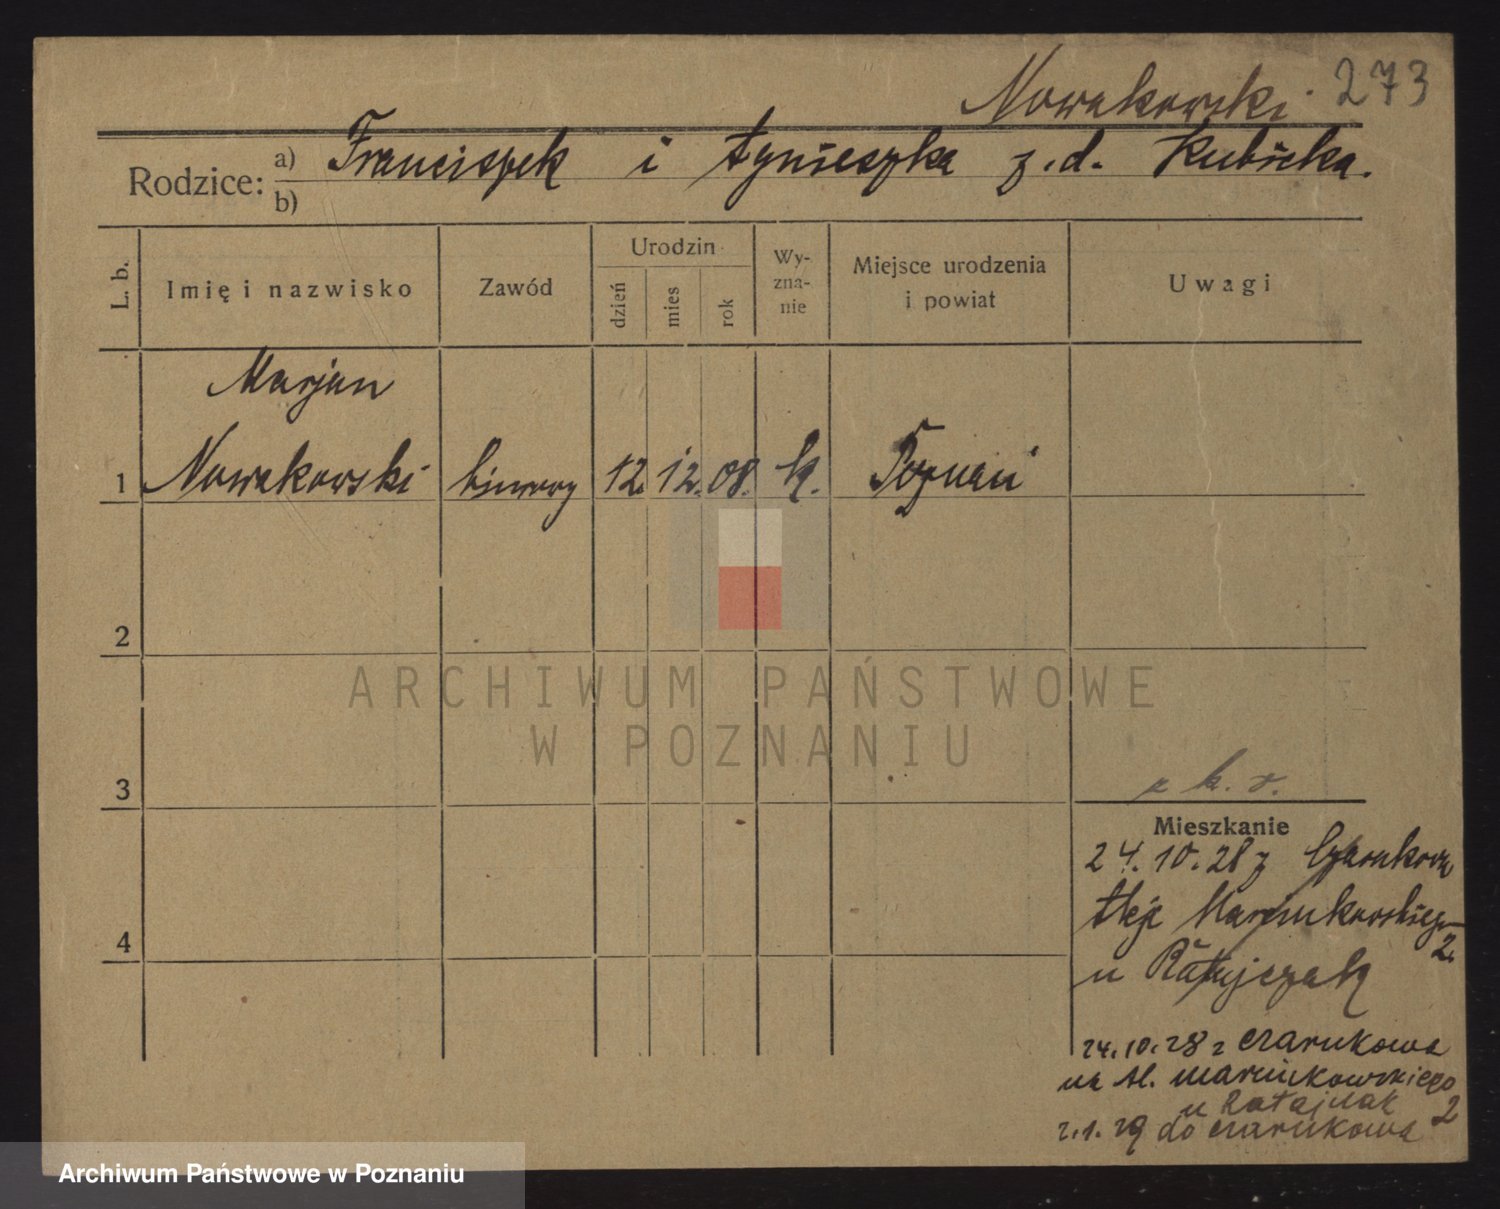 Nowakowski 273
Rodzice: a) Franciszek i Agnieszka z.d. Kubicka.
b)
L. b.
Imię i nazwisko
Zawód
Urodzin
dzień
mies
rok
Wy-
zna-
nie
Miejsce urodzenia
i powiat
Uwagi
Marjan
1 Nowakowski biurowy 12. 12. 08. k. Poznań
2
ARCHIWUM PAŃSTWOWE
W POZNANIU
3
k. r.
Mieszkanie
24.10.28 z Czarnkowa
Aleje Marcinkowskiego
2.
u Ratajczak
4
24.10.28 z Czarnkowa
na Al. Marcinkowskiego
u Ratajczak 2
2.1.29 do Czarnkowa
Archiwum Państwowe w Poznaniu